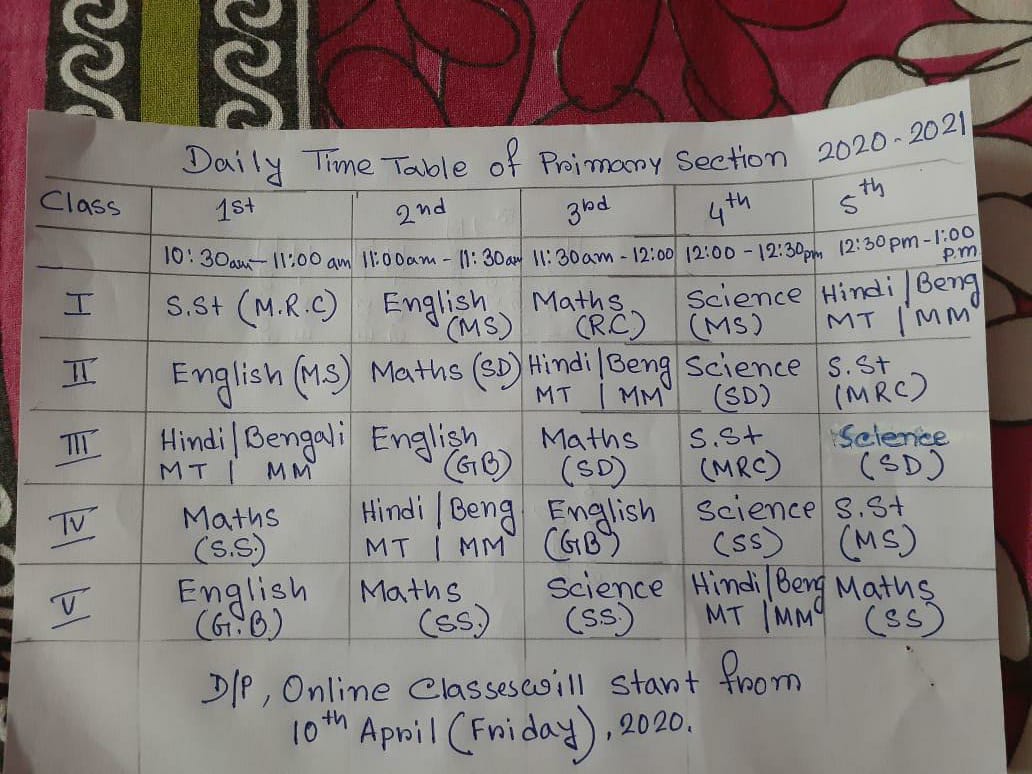 Daily Time Table of Primary Section 2020-2021
Class 1st 2nd 3rd 4th 5th
10:30am-11:00am 11:00am-11:30am 11:30am-12:00 12:00-12:30pm 12:30pm-1:00 p.m
I S.St (M.R.C) English (MS) Maths (R.C) Science (MS) Hindi | Beng MT | MM
II English (M.S) Maths (SD) Hindi | Beng MT | MM Science (SD) S.St (MRC)
III Hindi | Bengali MT | MM English (GB) Maths (SD) S.St (MRC) Science (SD)
IV Maths (S.S.) Hindi | Beng MT | MM English (GB) Science (SS) S.St (MS)
V English (G.B.) Maths (SS.) Science (SS.) Hindi | Beng MT | MM Maths (SS)
D/P, Online Classes will start from
10th April (Friday), 2020.